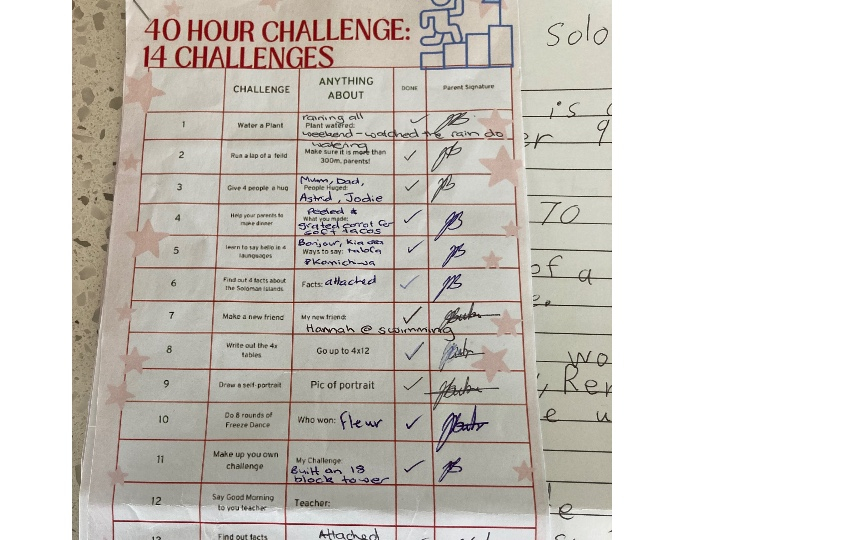 40 HOUR CHALLENGE:
14 CHALLENGES
CHALLENGE ANYTHING ABOUT DONE Parent Signature
1 Water a Plant
raining all
Plant watered:
weekend - watched the rain do
watering
2 Run a lap of a feild
Make sure it is more than
300m, parents!
3 Give 4 people a hug
Mum, Dad,
People Huged:
Astrid, Jodie
4 Help your parents to
make dinner
Peeled &
What you made:
grated carrot for
soft tacos
5 learn to say hello in 4
launguages
Bonjour, Kia ora
Ways to say: talofa
& Konichiwa
6 Find out 4 facts about
the Soloman Islands
Facts: attached
7 Make a new friend
My new friend:
Hannah @ swimming
8 Write out the 4x
tables
Go up to 4x12
9 Draw a self-portrait Pic of portrait
10 Do 8 rounds of
Freeze Dance
Who won: fleur
11 Make up you own
challenge
My Challenge:
Built an 18
block tower
12 Say Good Morning
to you teacher
Teacher:
13 Find out facts Attached
Solo
is
er 9
70
of a
e.
wo
, Rer
e u
e